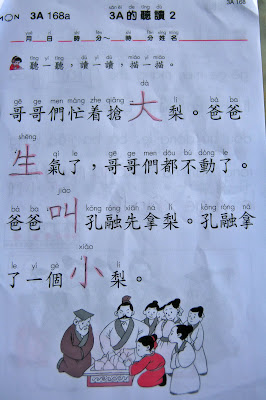 MON 3A 168a 3A 的 聽 讀 2
3A 168
月 日 時 分~ 時 分 姓名
tīng yì tīng dú yì dú miáo yì miáo
聽一聽，讀一讀，描一描。
gē ge men máng zhe qiǎng dà lí bà ba
哥哥們忙着搶大梨。爸爸
shēng qì le gē ge men dōu bú dòng le
生氣了，哥哥們都不動了。
bà ba jiào kǒng róng xiān ná lí kǒng róng ná
爸爸叫孔融先拿梨。孔融拿
le yí gè xiǎo lí
了一個小梨。